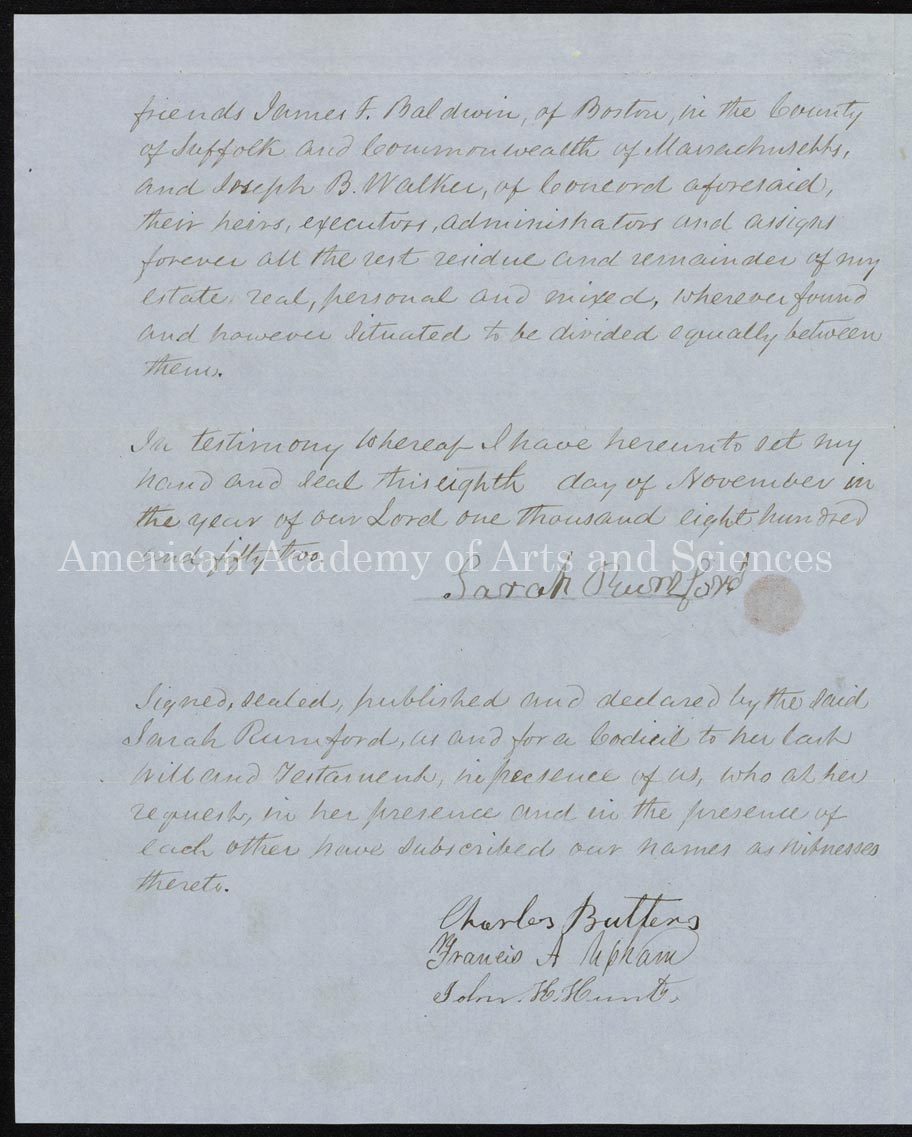 friends James F. Baldwin, of Boston, in the County
of Suffolk and Commonwealth of Massachusetts,
and Joseph B. Walker, of Concord aforesaid,
their heirs, executors, administrators and assigns
forever all the rest residue and remainder of my
estate real, personal and mixed, wherever found
and however situated to be divided equally between
them.
In testimony whereof I have hereunto set my
hand and seal this eighth day of November in
the year of our Lord one thousand eight hundred
and fifty two.
American Academy of Arts and Sciences
Sarah Rumford
Signed, sealed, published and declared by the said
Sarah Rumford, as and for a Codicil to her last
Will and Testament, in presence of us, who at her
request, in her presence and in the presence of
each other have subscribed our names as witnesses
thereto.
Charles Butters
Francis A Upham
John. H. Hunt.